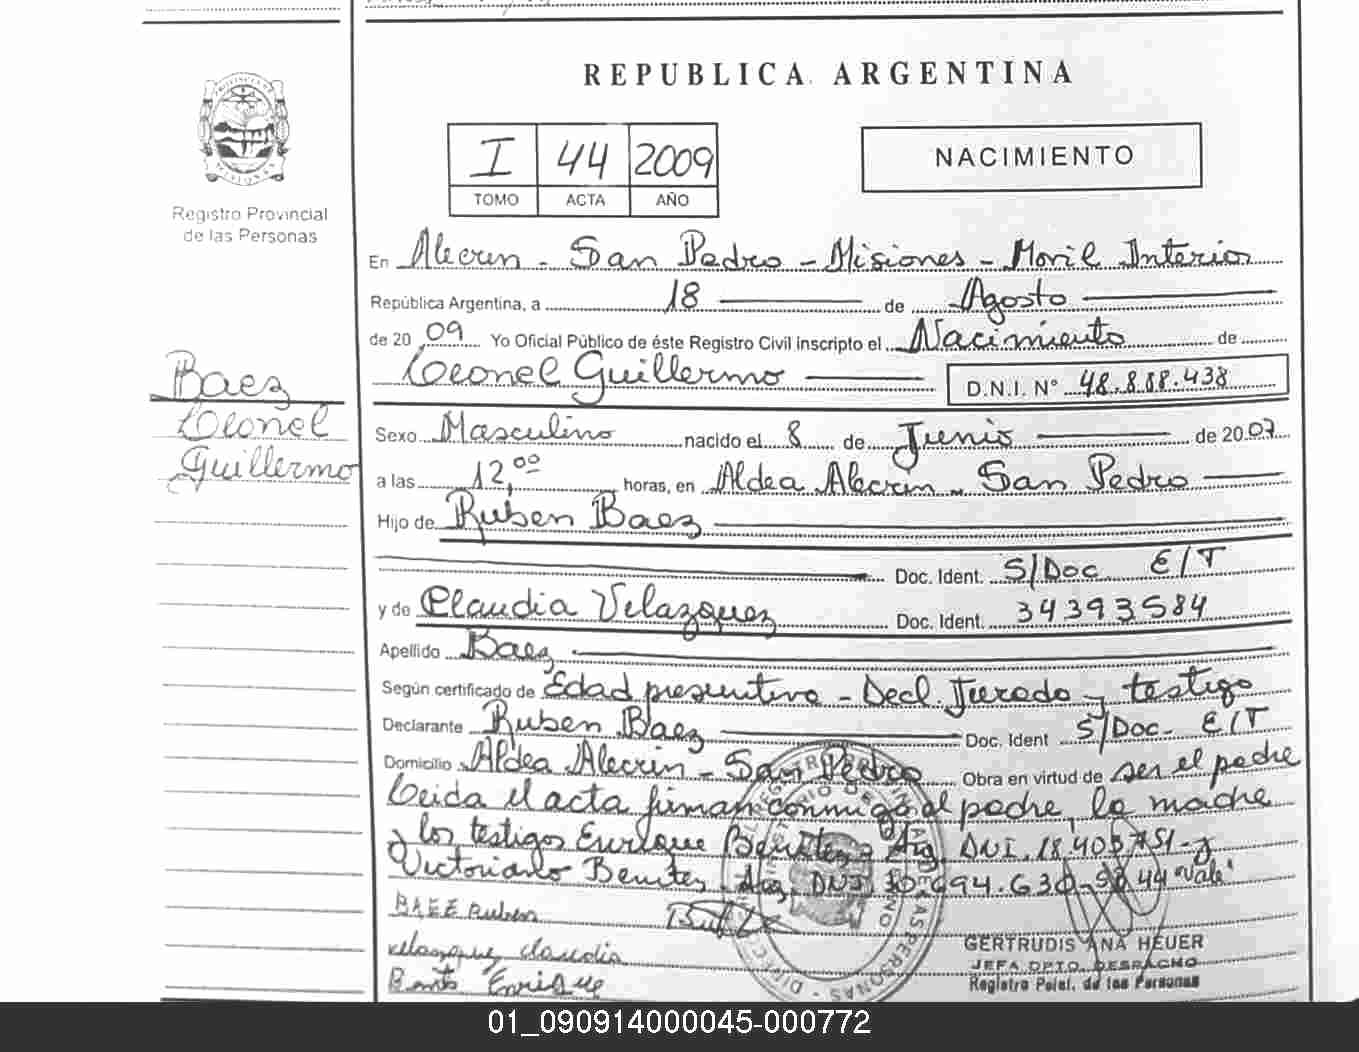 REPUBLICA ARGENTINA
PROVINCIA DE
MISIONES
Registro Provincial
de las Personas
I 44 2009
TOMO ACTA AÑO
NACIMIENTO
En Alecrin - San Pedro - Misiones - Movil Interior
República Argentina, a 18 de Agosto
de 2009 Yo Oficial Público de éste Registro Civil inscripto el Nacimiento de
Leonel Guillermo D.N.I. N° 48.888.438
Baez
Leonel
Guillermo
Sexo Masculino nacido el 8 de Junio de 2007
a las 12,00 horas, en Aldea Alecrin - San Pedro
Hijo de Ruben Baez
Doc. Ident. S/Doc E/T
y de Claudia Velazquez Doc. Ident. 34393584
Apellido Baez
Según certificado de Edad presuntiva - Decl. Jurada y testigo
Declarante Ruben Baez Doc. Ident S/Doc - E/T
Domicilio Aldea Alecrin - San Pedro Obra en virtud de ser el padre
Leida el acta firman conmigo el padre, la madre
y los testigos Enrique Benitez - Arg. DNI. 18.405.751 - y
Victoriano Benitez - Arg. DNI 30.694.630 - 44 "Vale"
BAEE Ruben
Velazquez claudia
Enrique
GERTRUDIS ANA HEUER
JEFA DPTO. DESPACHO
Registro Pcial. de las Personas
01_090914000045-000772